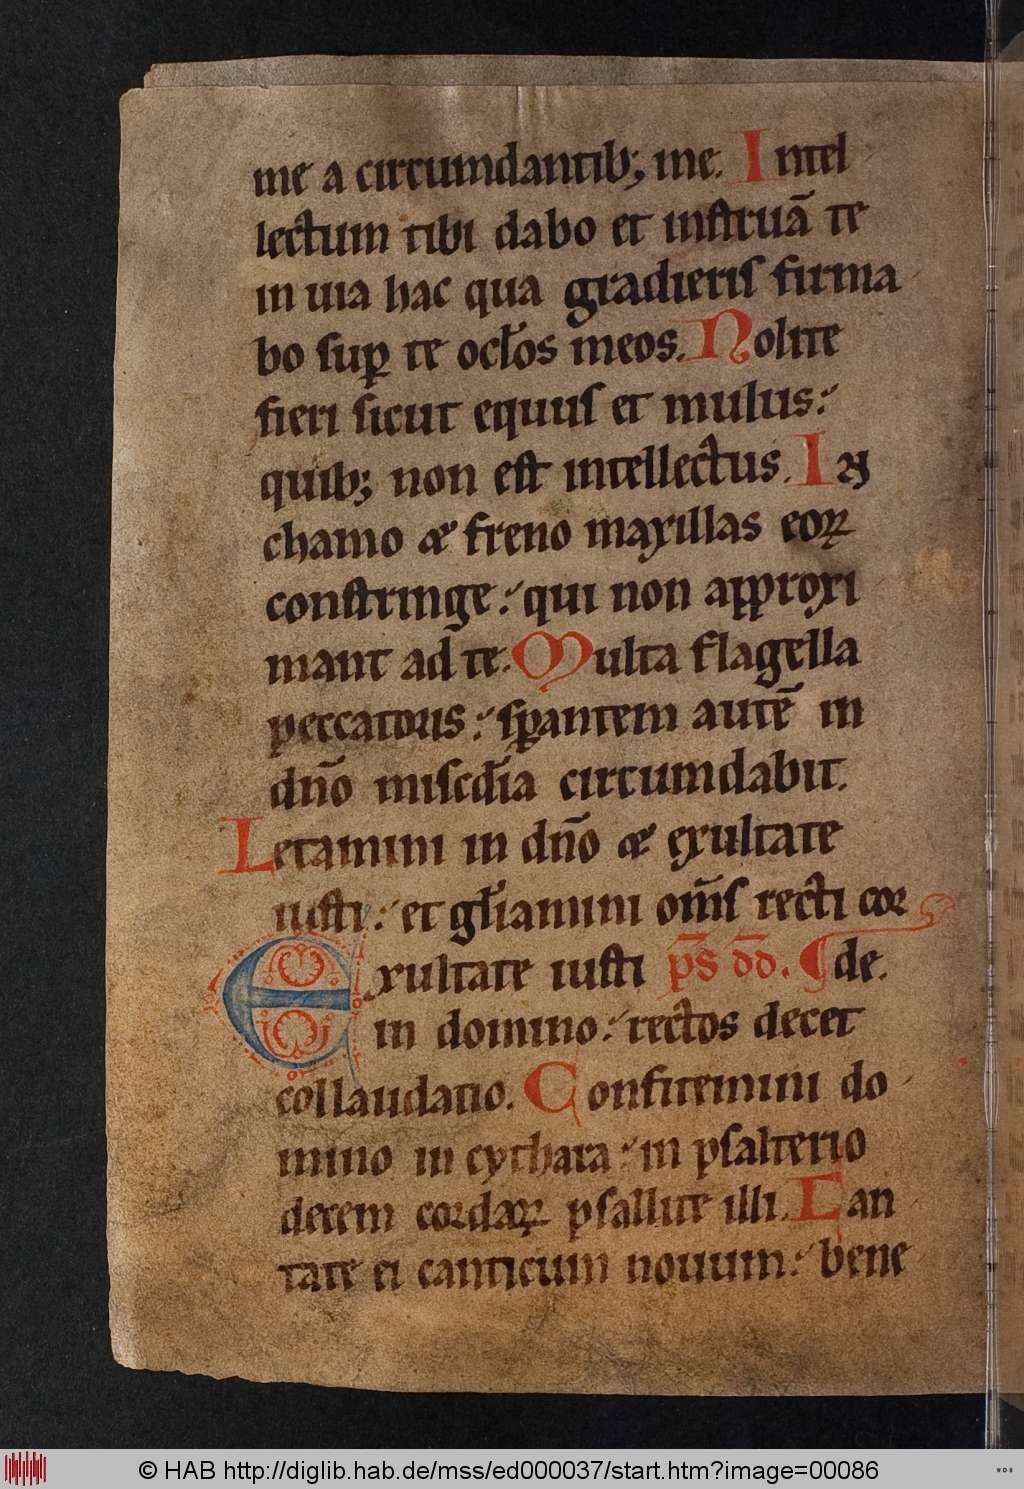 me a circumdantib; me. Intel
lectum tibi dabo et instruā te
in uia hac qua gradieris firma
bo sup te oclos meos. Nolite
fieri sicut equus et mulus:
quib; non est intellectus. In
chamo æ freno maxillas eoꝝ
constringe: qui non approxi
mant ad te. Multa flagella
peccatoris: sꝑantem autē in
dn̄o miscdia circumdabit.
Letamini in dn̄o æ exultate
iusti: et gl̄iamini om̄s recti cor
Exultate iusti p̄s dd̄. ¶ de.
in domino: rectos decet
collaudatio. Confitemini do
mino in cythara: in psalterio
decem cordaꝝ psallite illi. Can
tate ei canticum nouum: bene
© HAB http://diglib.hab.de/mss/ed000037/start.htm?image=00086